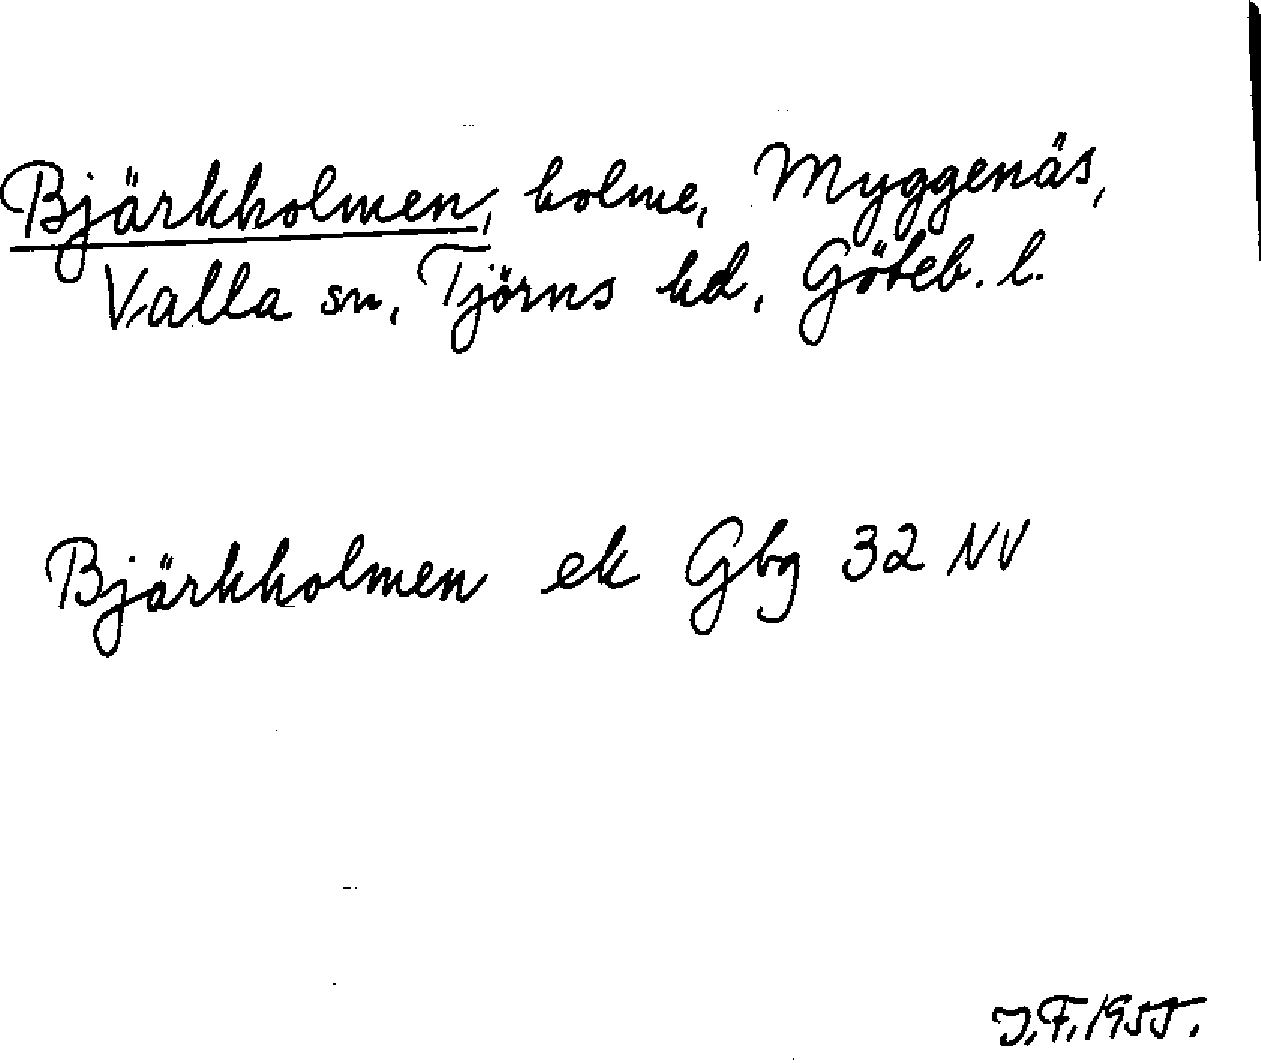 Bjärkholmen, holme, Myggenäs,
Valla sn, Tjörns hd, Göteb. l.
Bjärkholmen ek Gbg 32 NV
J.F. 1955.